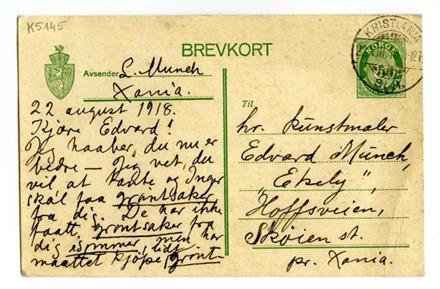 K5145
BREVKORT
KRISTIANIA
NORGE
Avsender
L. Munch
Xania.
22. august 1918.
Kjære Edvard!
Jeg haaber, du nu er
bedre – Jeg vet, du
vil at tante og Inger
skal faa grøntsaker
fra dig. De har ikke
faatt grøntsaker fra
dig isommer, men har
maattet kjøpe grønt-
Til
hr. kunstmaler
Edvard Munch,
"Ekely"
Hoffsveien,
Skøien st.
pr. Xania.